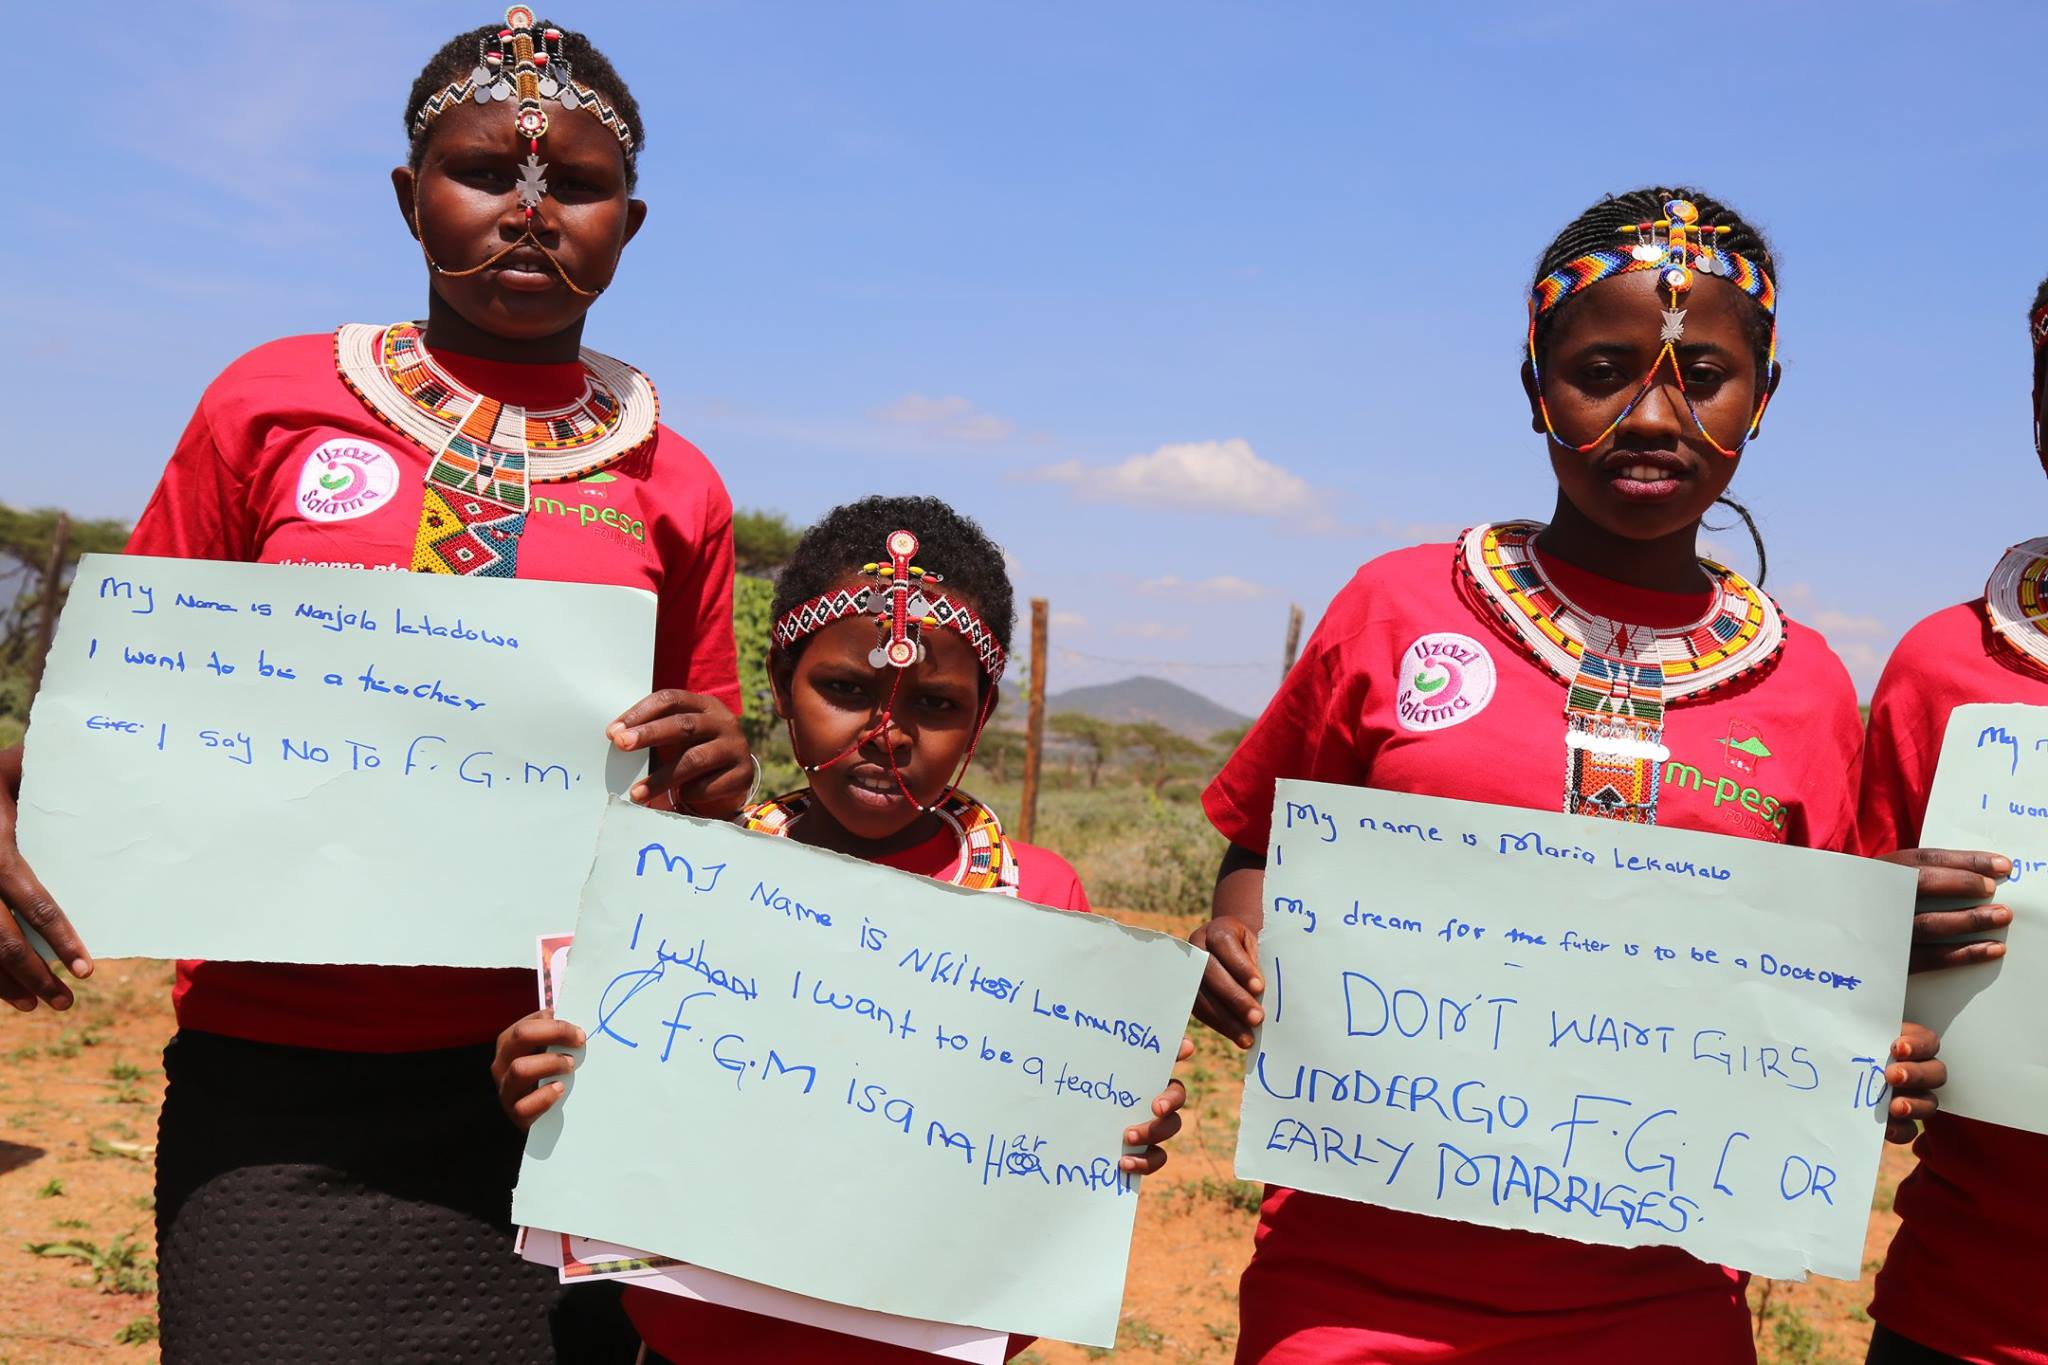 Uzazi
Salama
m-pesa
FOUNDATION
My Name is Nanjala Letadowa
I want to be a teacher
I say NO TO F.G.M.
MJ Name is Nkitesi Lemursia
I whant I want to be a teacher
F.G.M is a Harmfull
Uzazi
Salama
m-pesa
FOUNDATION
My name is Maria Lekalkalo
I
My dream for the futer is to be a Doctor
I DON'T WANT GIRS TO
UNDERGO F.G.C OR
EARLY MARRIGES.
My
I wan
gir